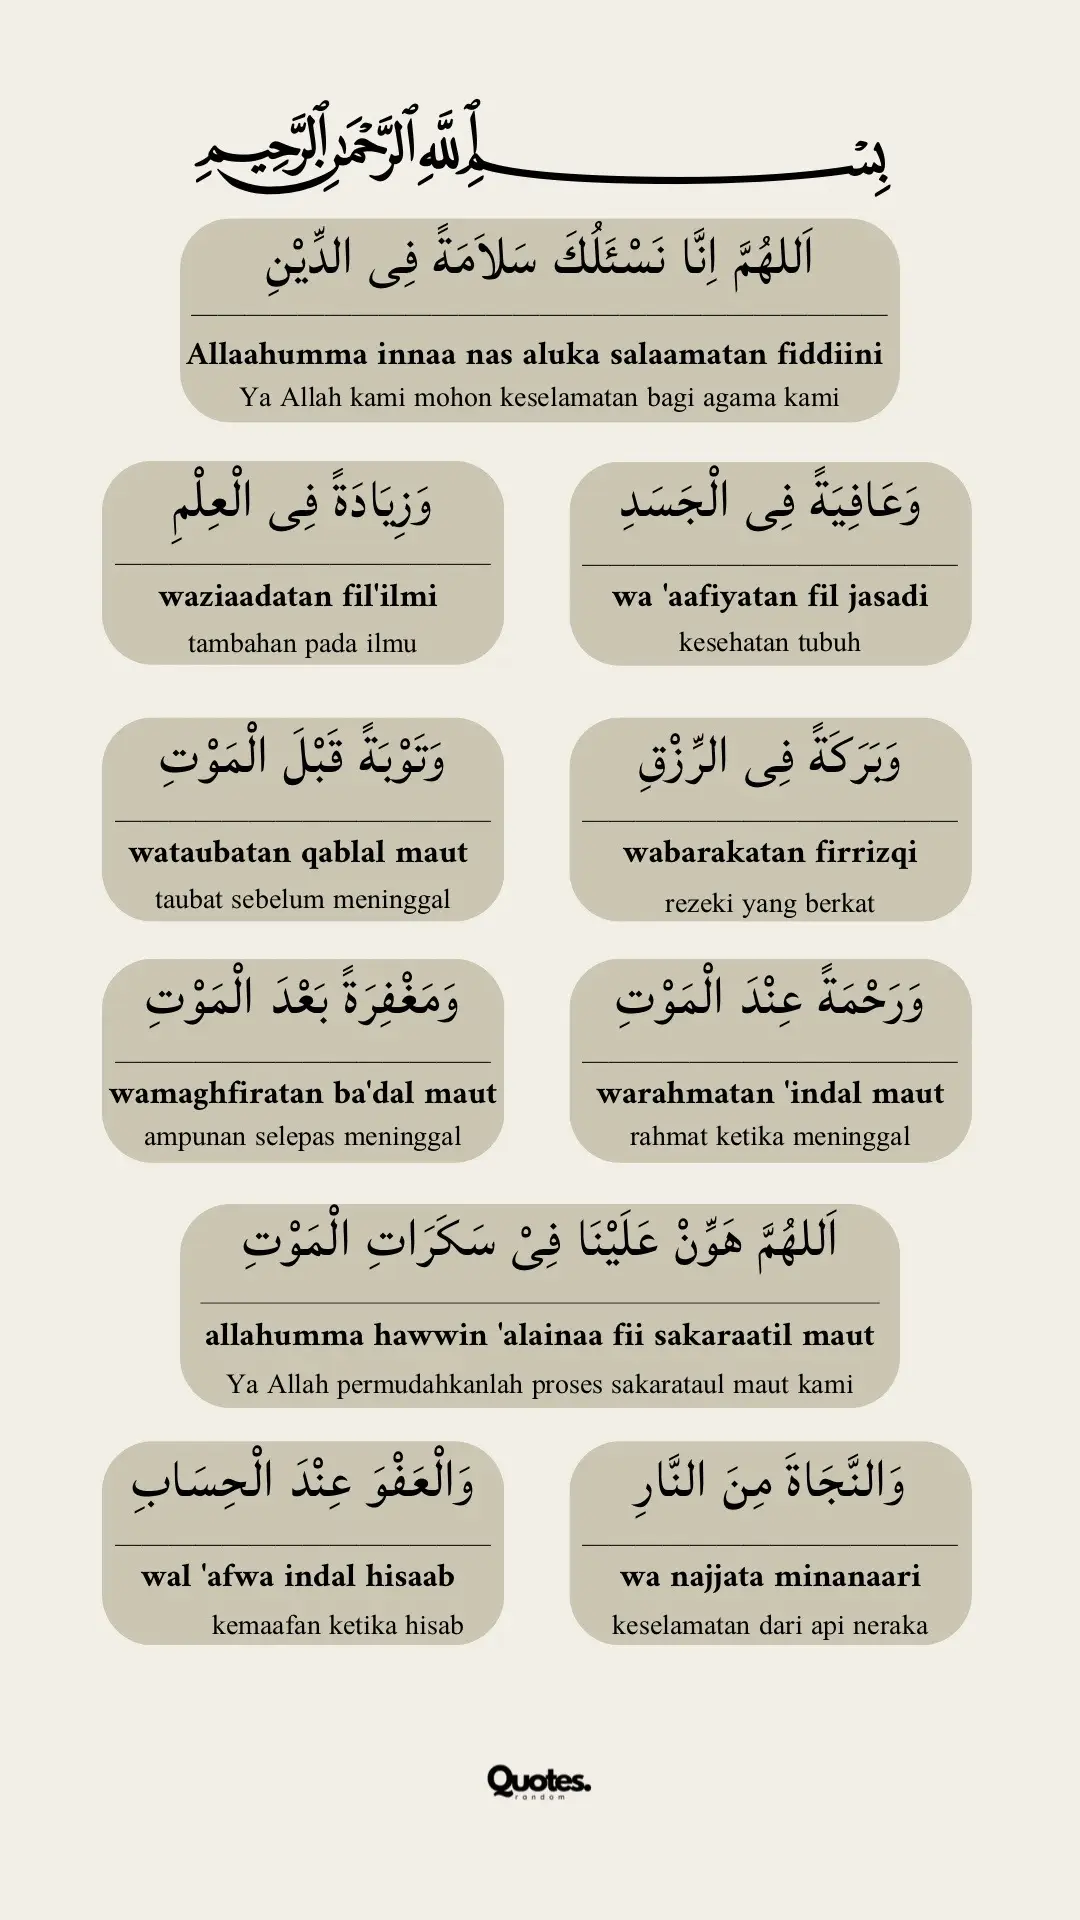 بِسْمِ ٱللَّهِ ٱلرَّحْمَٰنِ ٱلرَّحِيمِ
اَللهُمَّ اِنَّا نَسْئَلُكَ سَلاَمَةً فِى الدِّيْنِ
Allaahumma innaa nas aluka salaamatan fiddiini
Ya Allah kami mohon keselamatan bagi agama kami
وَعَافِيَةً فِى الْجَسَدِ
wa 'aafiyatan fil jasadi
kesehatan tubuh
وَزِيَادَةً فِى الْعِلْمِ
waziaadatan fil'ilmi
tambahan pada ilmu
وَبَرَكَةً فِى الرِّزْقِ
wabarakatan firrizqi
rezeki yang berkat
وَتَوْبَةً قَبْلَ الْمَوْتِ
wataubatan qablal maut
taubat sebelum meninggal
وَرَحْمَةً عِنْدَ الْمَوْتِ
warahmatan 'indal maut
rahmat ketika meninggal
وَمَغْفِرَةً بَعْدَ الْمَوْتِ
wamaghfiratan ba'dal maut
ampunan selepas meninggal
اَللهُمَّ هَوِّنْ عَلَيْنَا فِىْ سَكَرَاتِ الْمَوْتِ
allahumma hawwin 'alainaa fii sakaraatil maut
Ya Allah permudahkanlah proses sakarataul maut kami
وَالنَّجَاةَ مِنَ النَّارِ
wa najjata minanaari
keselamatan dari api neraka
وَالْعَفْوَ عِنْدَ الْحِسَابِ
wal 'afwa indal hisaab
kemaafan ketika hisab
Quotes.
random